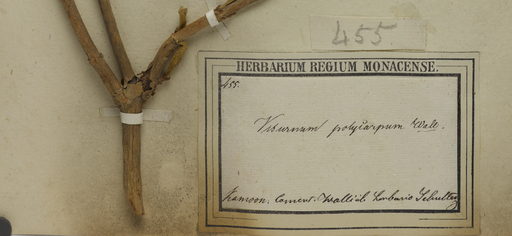 455
HERBARIUM REGIUM MONACENSE.
455.
Viburnum polycarpum Wall.
Kamoon. Coment. Wallich Herbario